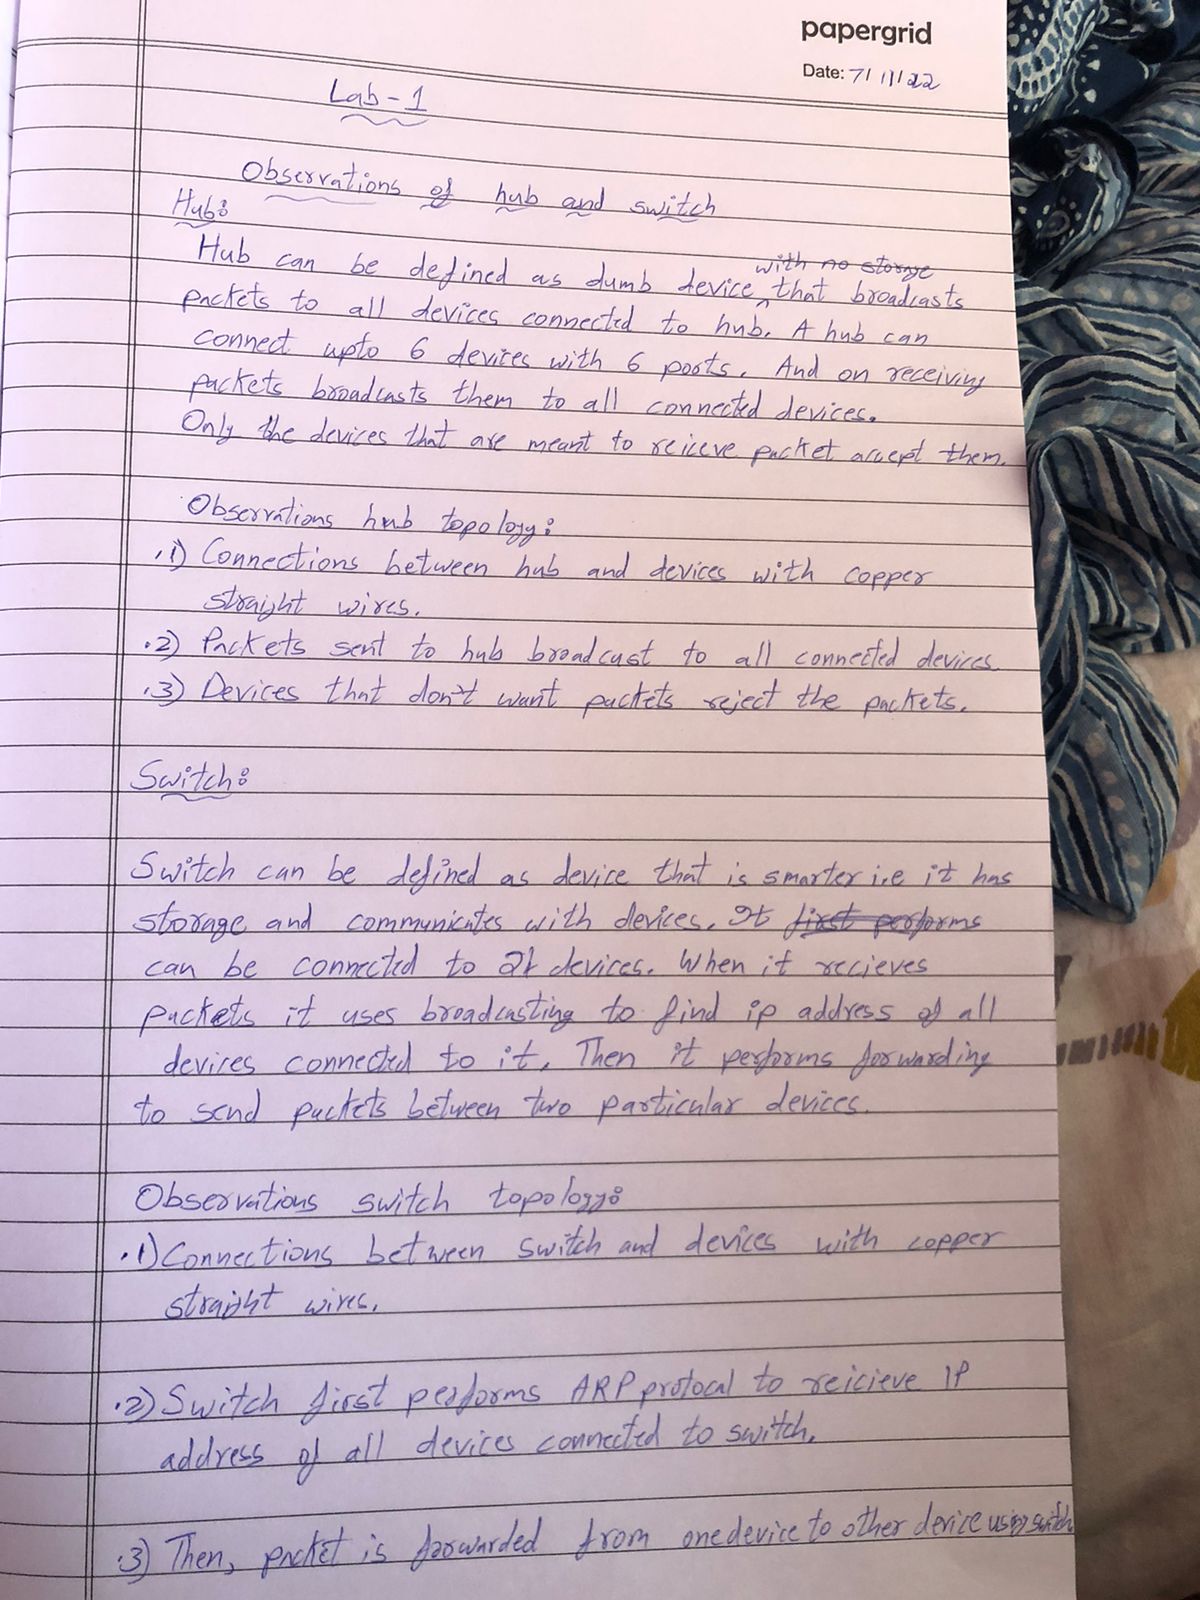 papergrid
Date: 7/11/22
Lab-1
Observations of hub and switch
Hub:
Hub can be defined as dumb device with no storage that broadcasts
packets to all devices connected to hub. A hub can
connect upto 6 devices with 6 ports. And on receiving
packets broadcasts them to all connected devices.
Only the devices that are meant to reiceve packet accept them.
Observations hub topology:
.1) Connections between hub and devices with copper
straight wires.
.2) Packets sent to hub broadcast to all connected devices
.3) Devices that don't want packets reject the packets.
Switch:
Switch can be defined as device that is smarter i.e it has
storage and communicates with devices. It first performs
can be connected to devices. When it recieves
packets it uses broadcasting to find ip address of all
devices connected to it. Then it performs forwarding
to send packets between two particular devices.
Observations switch topology:
.1) Connections between switch and devices with copper
straight wires.
.2) Switch first performs ARP protocal to reicieve IP
address of all devices connected to switch.
.3) Then, packet is forwarded from one device to other device using switch